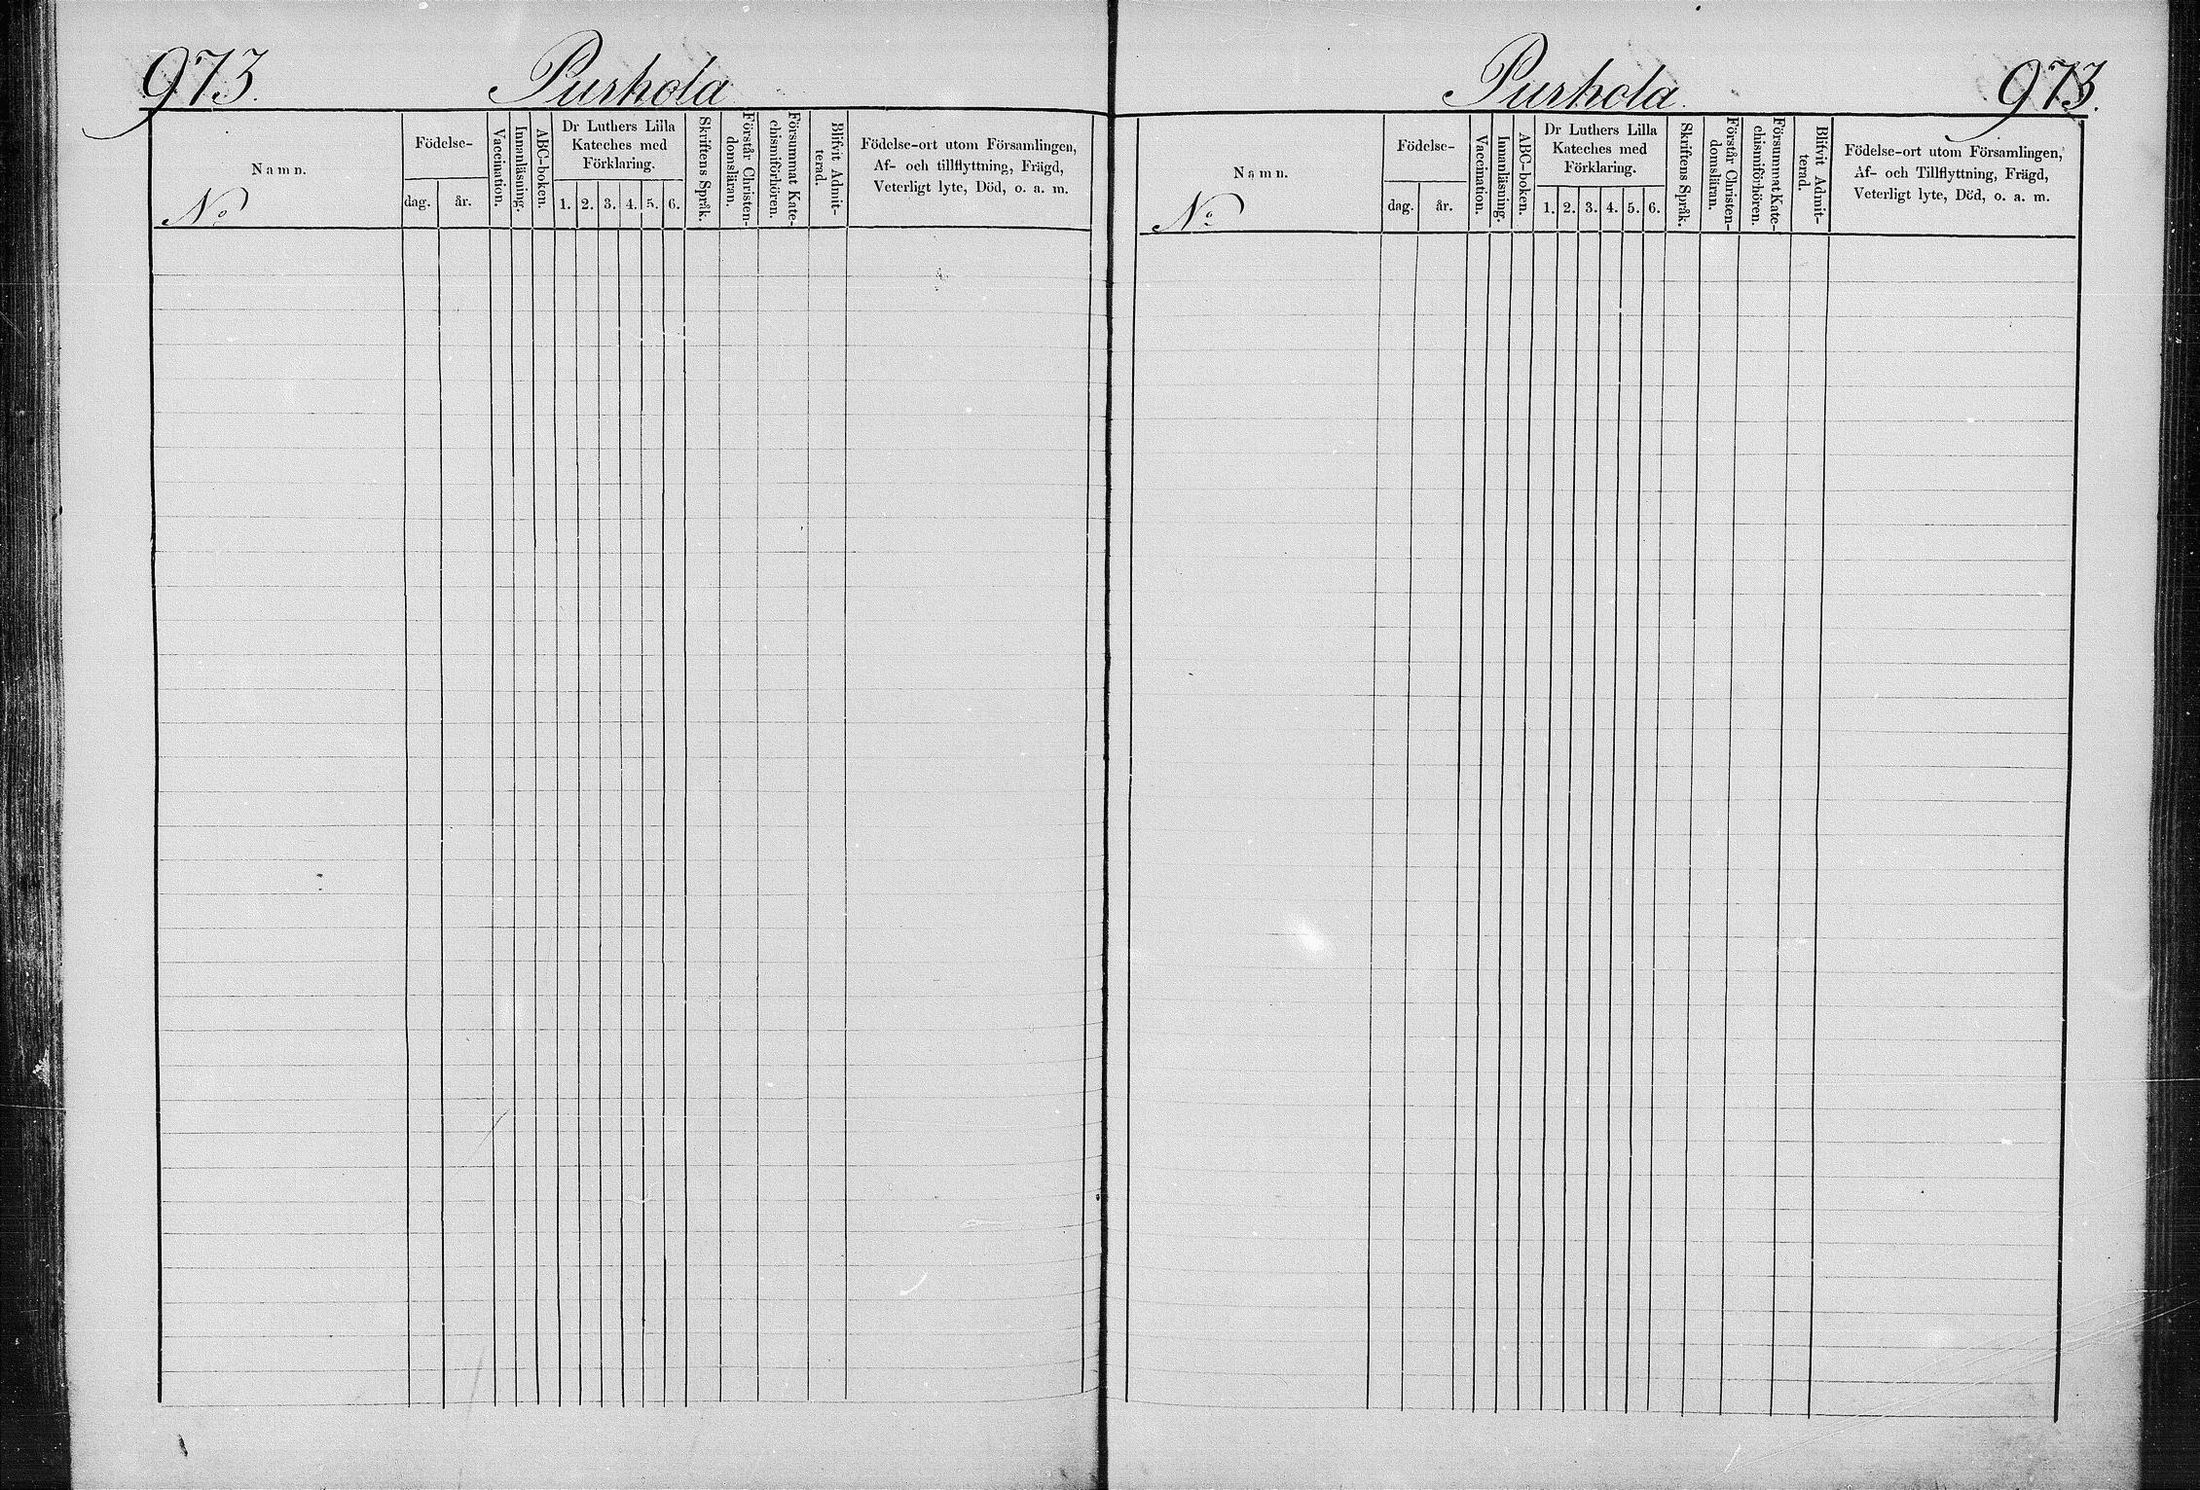 973.
Purhola
Namn.
No
Födelse-
dag. år.
Vaccination.
Innanläsning.
ABC-boken.
Dr Luthers Lilla
Kateches med
Förklaring.
1. 2. 3. 4. 5. 6.
Skriftens Språk.
Förstår Christen-
domsläran.
Försummat Kate-
chismiförhören.
Blifvit Admit-
terad.
Födelse-ort utom Församlingen,
Af- och tillflyttning, Frägd,
Veterligt lyte, Död, o. a. m.
Purhola.
973.
Namn.
No
Födelse-
dag. år.
Vaccination.
Innanläsning.
ABC-boken.
Dr Luthers Lilla
Kateches med
Förklaring.
1. 2. 3. 4. 5. 6.
Skriftens Språk.
Förstår Christen-
domsläran.
Försummat Kate-
chismiförhören.
Blifvit Admit-
terad.
Födelse-ort utom Församlingen,
Af- och Tillflyttning, Frägd,
Veterligt lyte, Död, o. a. m.